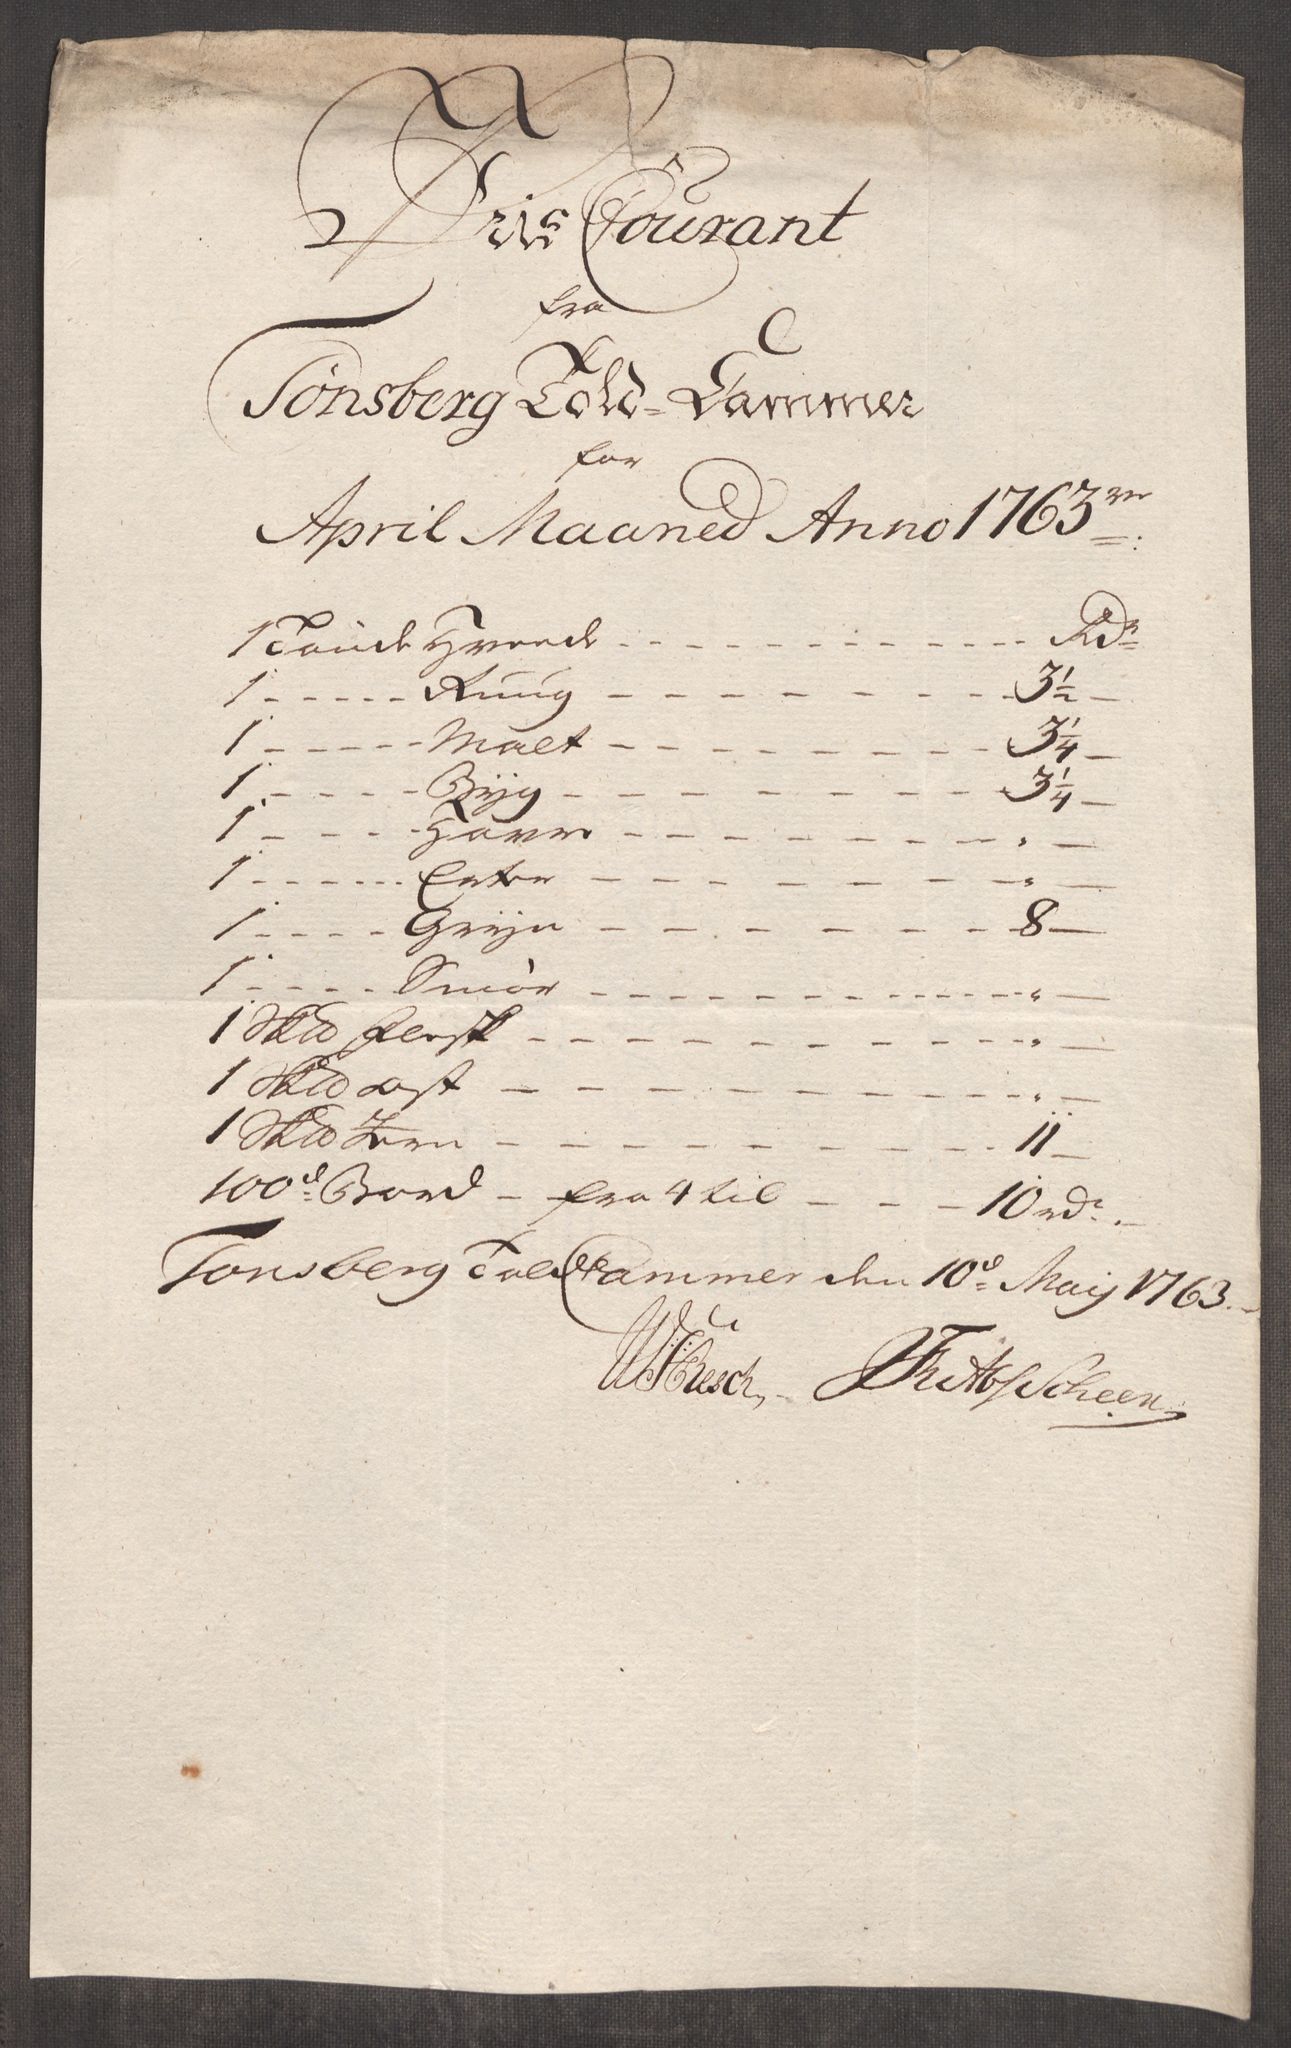 Priis Courant
fra
Tønsberg Told-Cammer
for
April Maaned Anno 1763
1 Tønde Hvede Rdr
1 Ruug 3 1/2
1 Malt 3 1/4
1 Byg 3 1/4
1 Havre "
1 Erter "
1 Gryn 8
1 Smør "
1 Skd flesk "
1 Skd ost "
1 Skd Jern 11
100d Bord fra 4 til 10 rdr
Tonsberg Told Cammer den 10d May 1763
Scheen